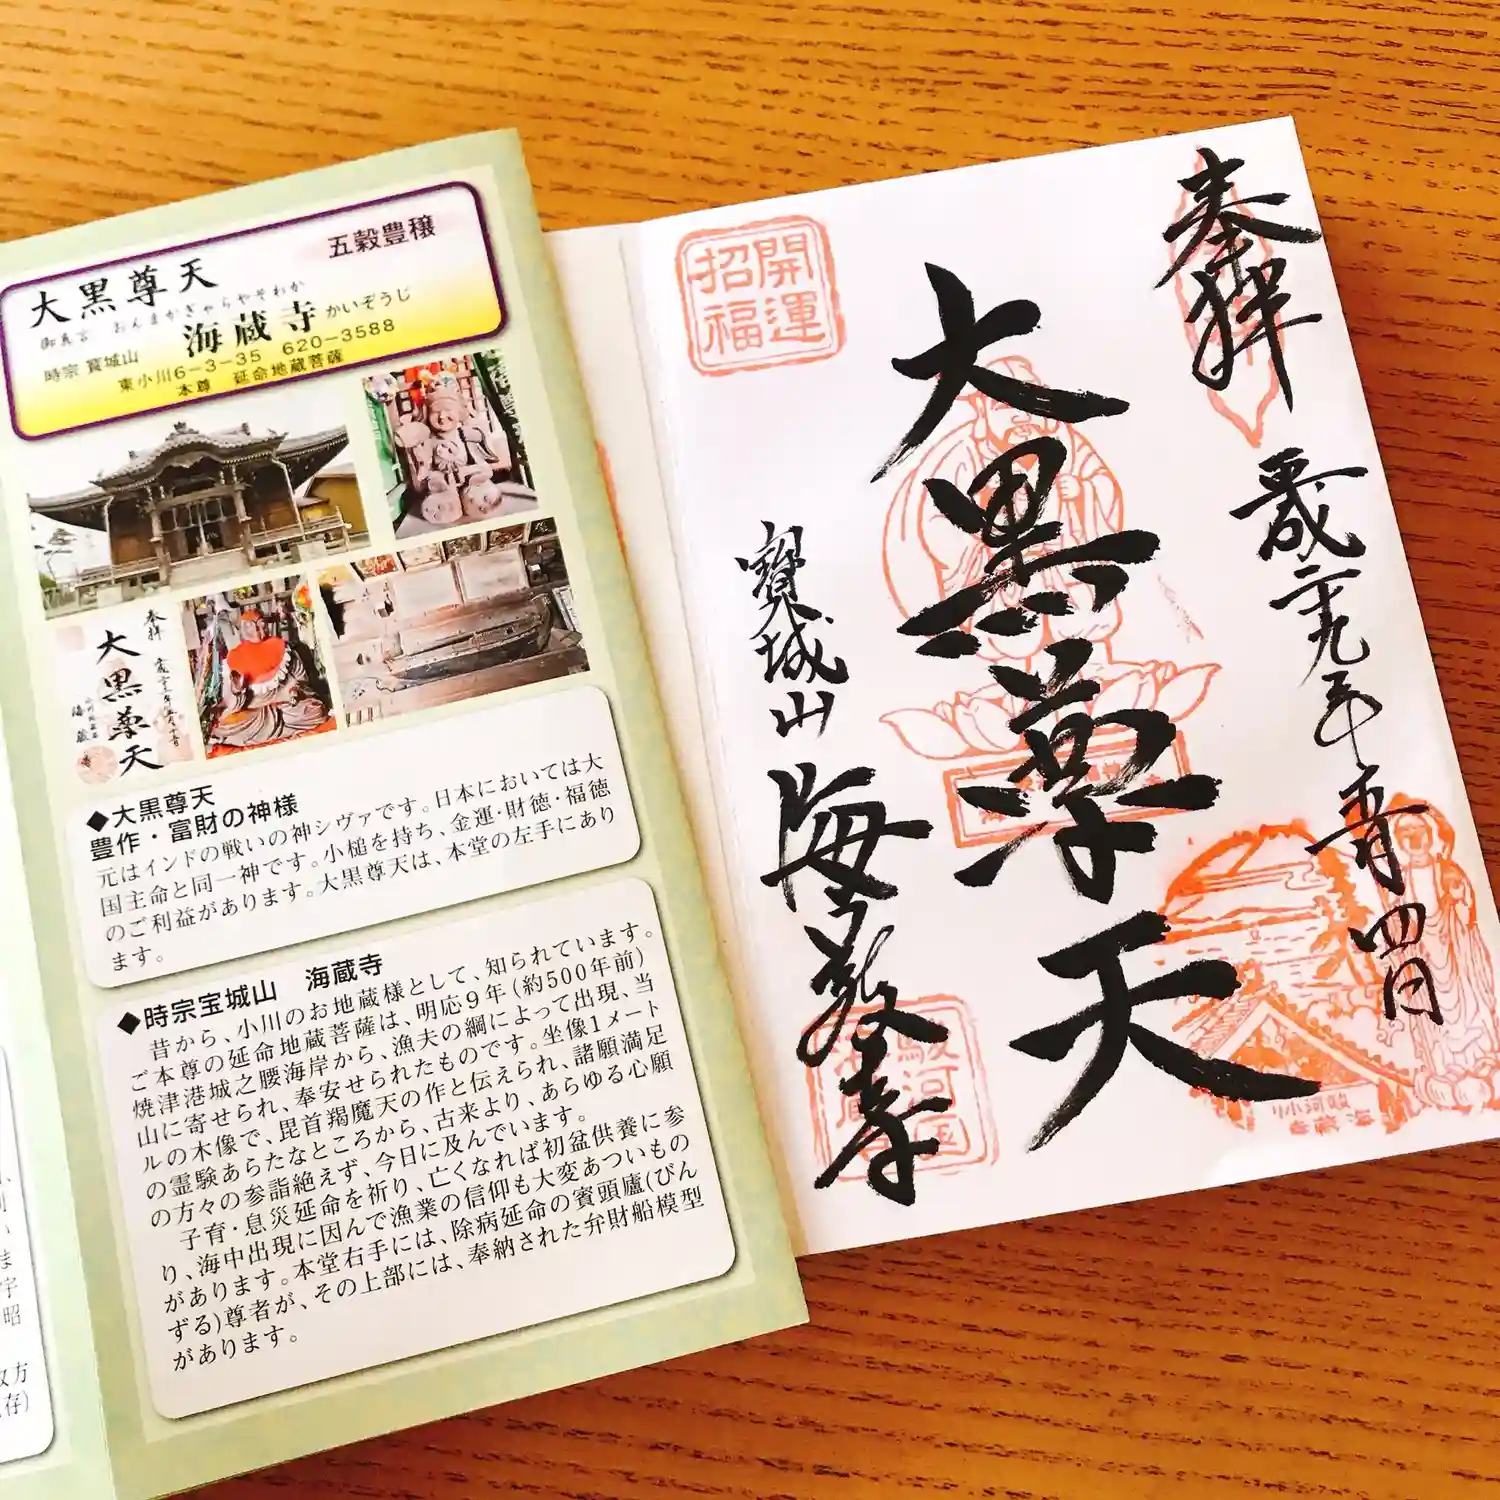 五穀豊穣
大黒尊天
御真言 おんまかぎゃらやそわか
海蔵寺 かいぞうじ
時宗 寳城山
東小川6−3−35 620−3588
本尊 延命地蔵菩薩
奉拝
大黒尊天
◆大黒尊天
豊作・富財の神様
元はインドの戦いの神シヴァです。日本においては大
国主命と同一神です。小槌を持ち、金運・財徳・福徳
のご利益があります。大黒尊天は、本堂の左手にあり
ます。
◆時宗宝城山 海蔵寺
昔から、小川のお地蔵様として、知られています。
ご本尊の延命地蔵菩薩は、明応9年(約500年前)
焼津港城之腰海岸から、漁夫の綱によって出現、当
山に寄せられ、奉安せられたものです。坐像1メート
ルの木像で、毘首羯魔天の作と伝えられ、諸願満足
の霊験あらたなところから、古来より、あらゆる心願
の方々の参詣絶えず、今日に及んでいます。
子育・息災延命を祈り、亡くなれば初盆供養に参
り、海中出現に因んで漁業の信仰も大変あついもの
があります。本堂右手には、除病延命の賓頭廬(びん
ずる)尊者が、その上部には、奉納された弁財船模型
があります。
奉拝
歳二十九年 四月
大黒尊天
開運
招福
寳城山
海蔵寺
駿河国